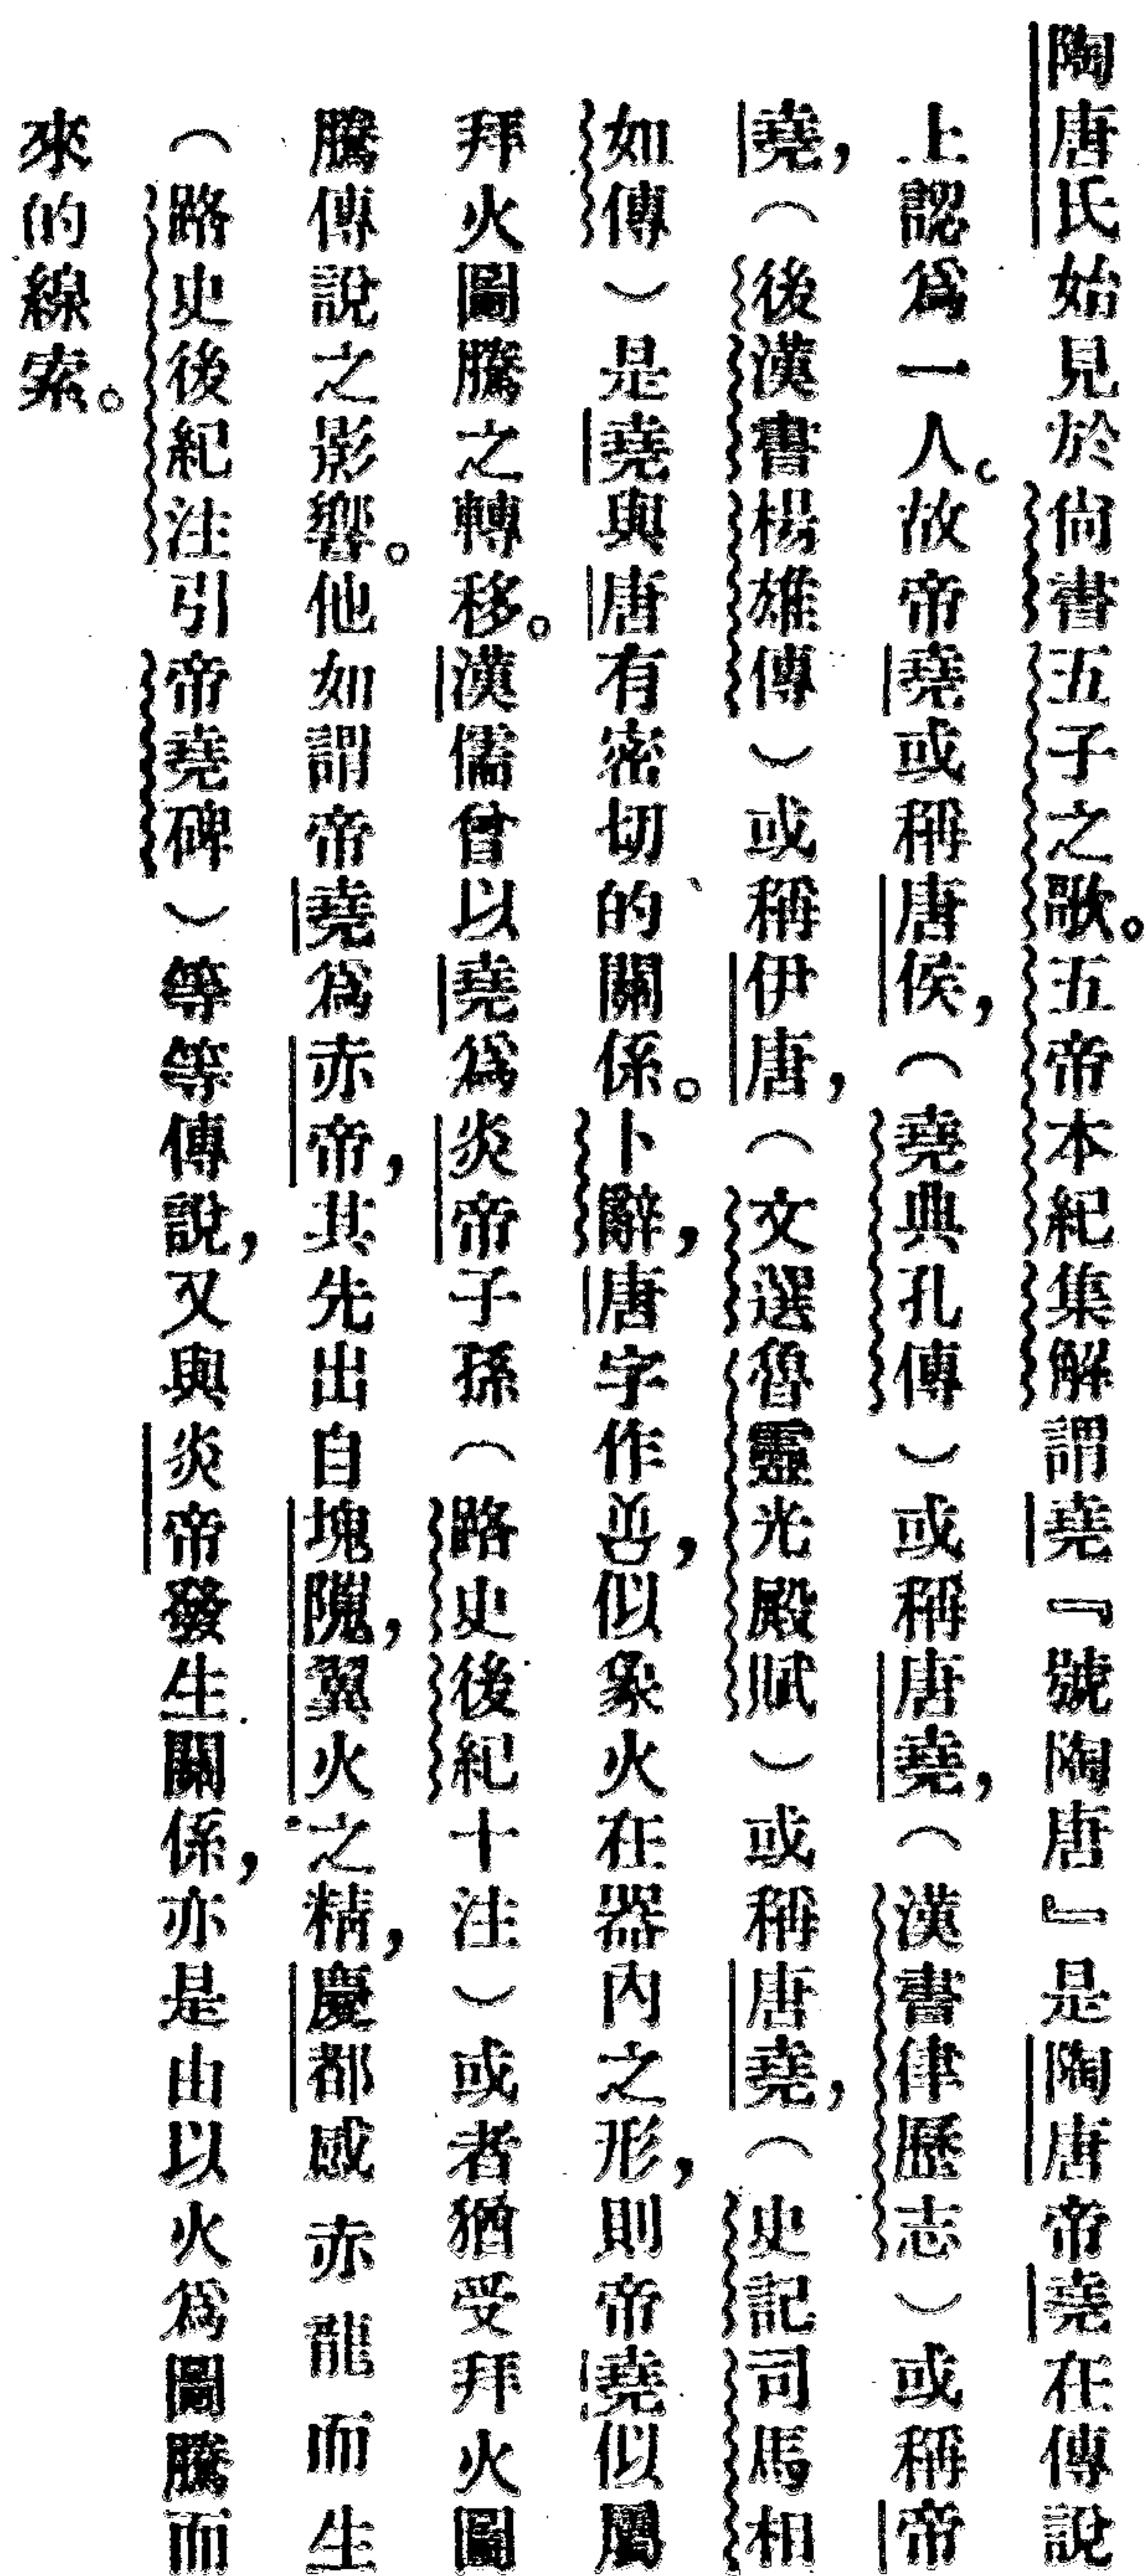 陶唐氏始見於尙書五子之歌。五帝本紀集解謂堯『號陶唐』是陶唐帝堯在傳說
上認爲一人。故帝堯或稱唐侯，（堯典孔傳）或稱唐堯，（漢書律歷志）或稱帝
堯，（後漢書楊雄傳）或稱伊唐，（文選魯靈光殿賦）或稱唐堯，（史記司馬相
如傳）是堯與唐有密切的關係。卜辭，唐字作，似象火在器內之形，則帝堯似屬
拜火圖騰之轉移。漢儒曾以堯爲炎帝子孫（路史後紀十注）或者猶受拜火圖
騰傳說之影響。他如謂帝堯爲赤帝，其先出自塊隗，翼火之精，慶都感赤龍而生
（路史後紀注引帝堯碑）等等傳說，又與炎帝發生關係，亦是由以火爲圖騰而
來的線索。